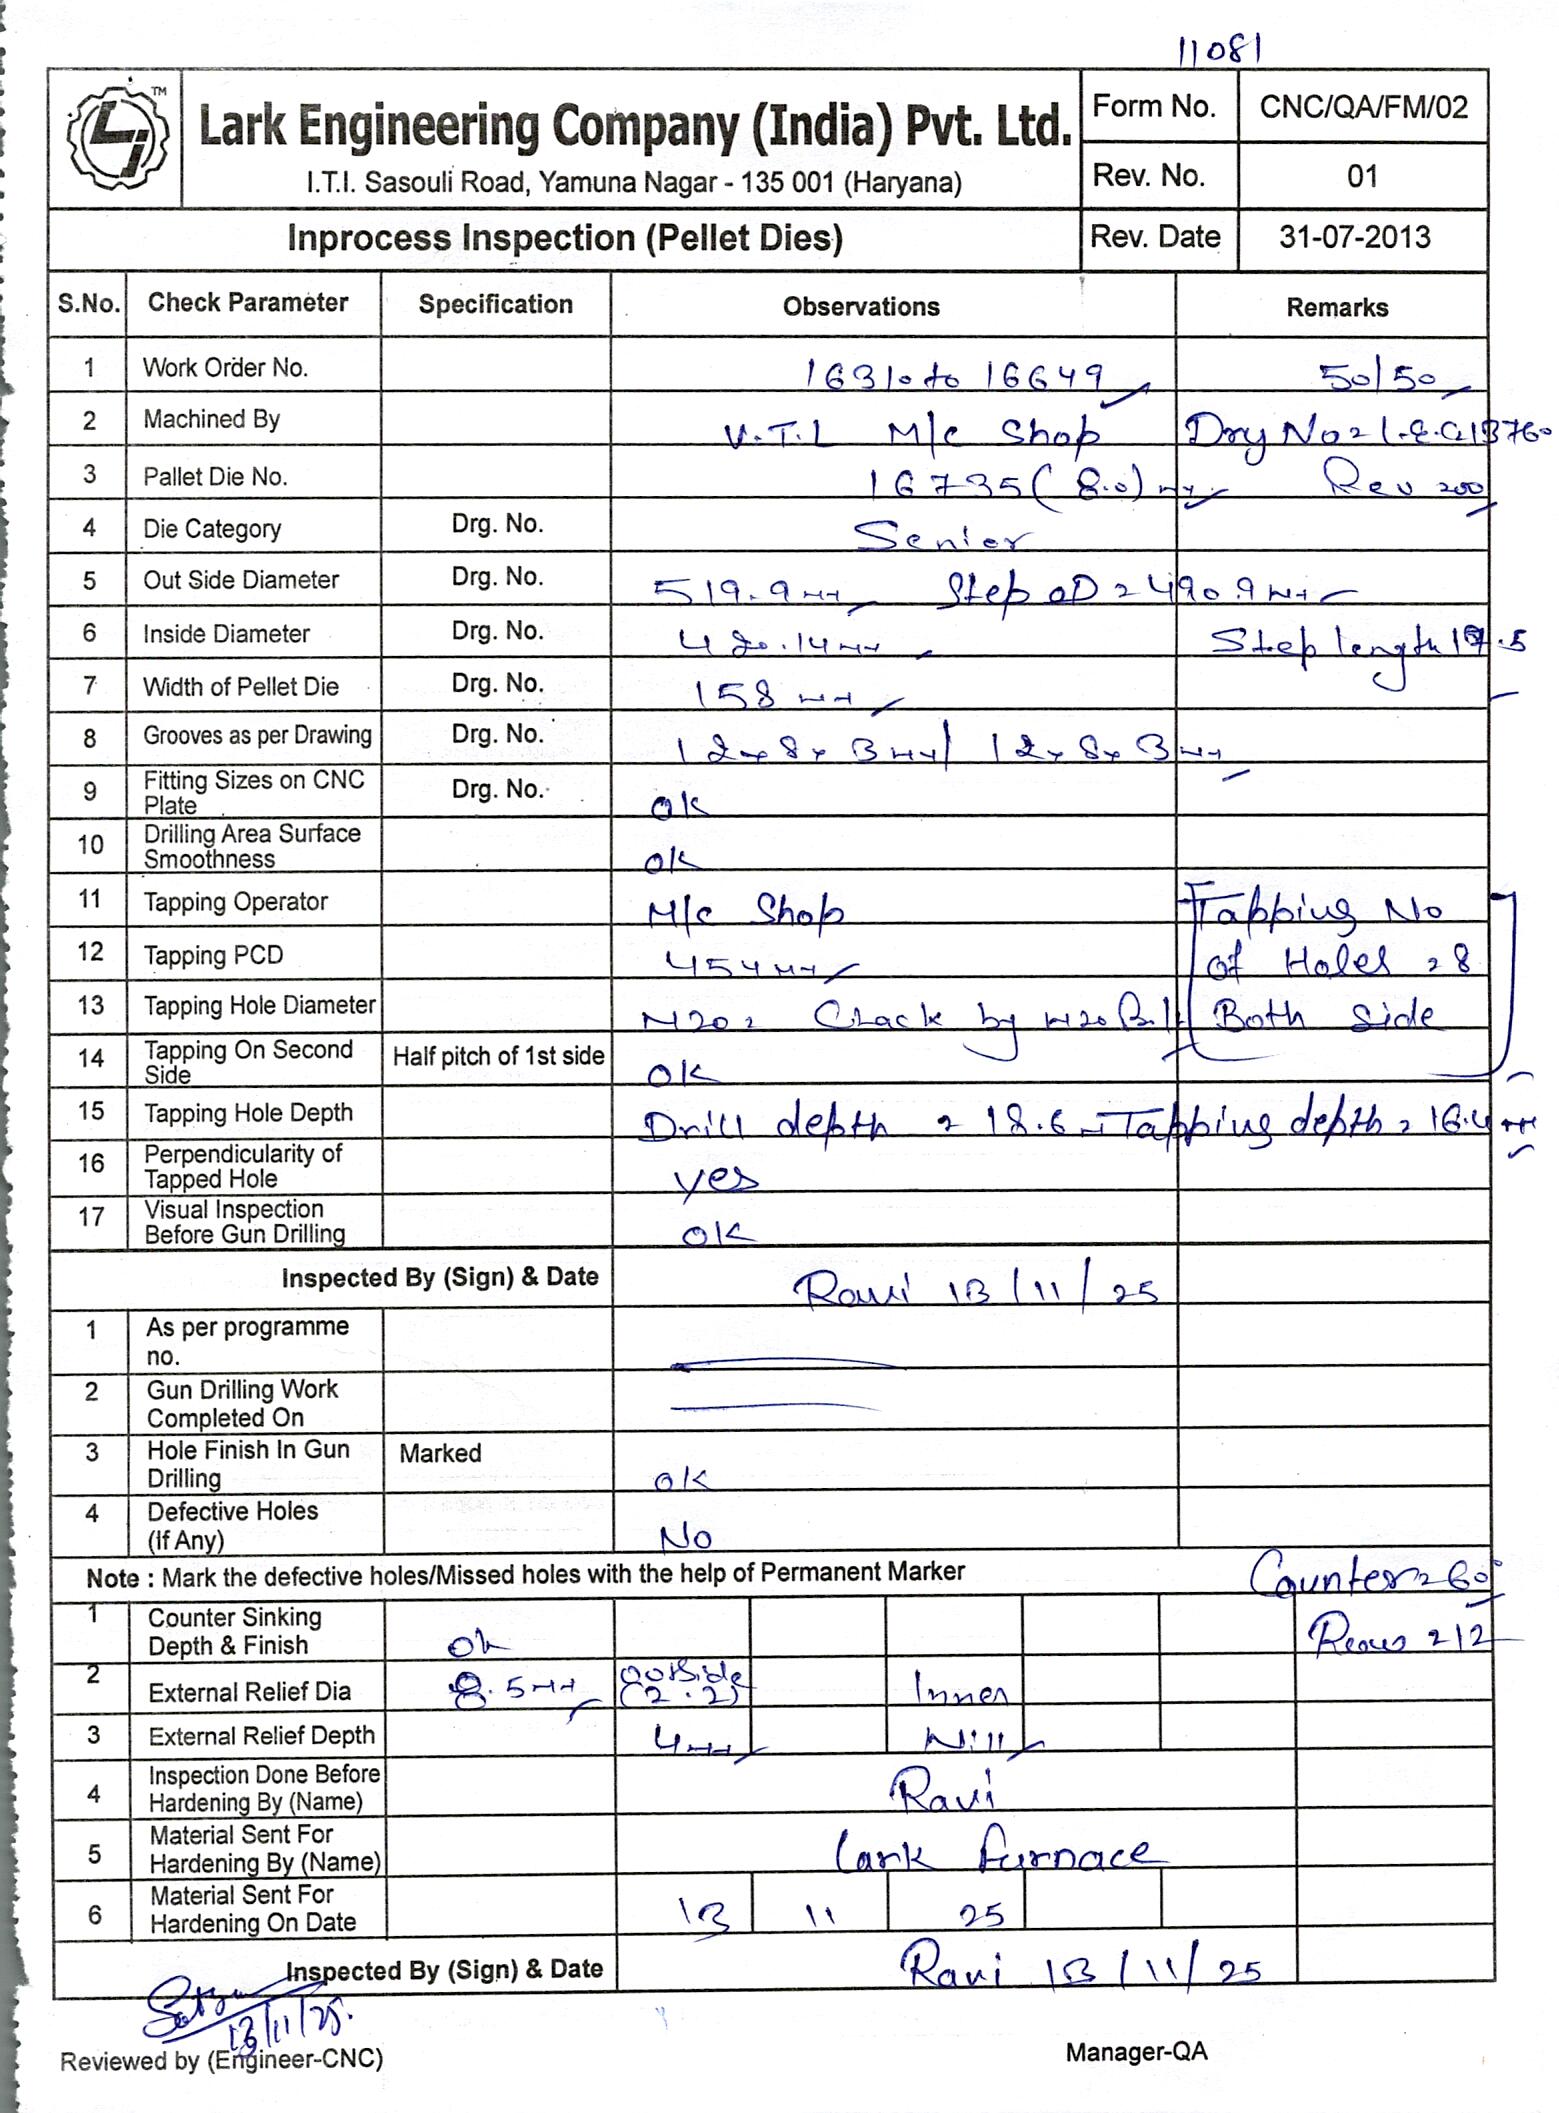 11081
TM
Lark Engineering Company (India) Pvt. Ltd.
I.T.I. Sasouli Road, Yamuna Nagar - 135 001 (Haryana)
Form No. CNC/QA/FM/02
Rev. No. 01
Inprocess Inspection (Pellet Dies) Rev. Date 31-07-2013
S.No. Check Parameter Specification Observations Remarks
1 Work Order No. 16310 to 16649 50/50
2 Machined By V.T.L M/c Shop Drg No = L.E.C 13760
3 Pallet Die No. 16735 (8.0) mm Rev 200
4 Die Category Drg. No. Senior
5 Out Side Diameter Drg. No. 519.9 mm Step OD = 490.9 mm
6 Inside Diameter Drg. No. 420.14 mm Step length 17.5
7 Width of Pellet Die Drg. No. 158 mm
8 Grooves as per Drawing Drg. No. 12 x 8 x 3 mm / 12 x 8 x 3 mm
9 Fitting Sizes on CNC Plate Drg. No. ok
10 Drilling Area Surface Smoothness ok
11 Tapping Operator M/c Shop Tapping No
12 Tapping PCD 454 mm of Holes = 8
13 Tapping Hole Diameter M20 = Check by M20 Bolt Both Side
14 Tapping On Second Side Half pitch of 1st side OK
15 Tapping Hole Depth Drill depth = 18.6 Tapping depth = 16.4 mm
16 Perpendicularity of Tapped Hole yes
17 Visual Inspection Before Gun Drilling OK
Inspected By (Sign) & Date Ravi 13/11/25
1 As per programme no.
2 Gun Drilling Work Completed On
3 Hole Finish In Gun Drilling Marked ok
4 Defective Holes (If Any) No
Note : Mark the defective holes/Missed holes with the help of Permanent Marker Counter = 60°
1 Counter Sinking Depth & Finish ok = 212
2 External Relief Dia 8.5 mm outside (2.2) Inner
3 External Relief Depth 4 mm Nill
4 Inspection Done Before Hardening By (Name) Ravi
5 Material Sent For Hardening By (Name) Lark furnace
6 Material Sent For Hardening On Date 13 11 25
Inspected By (Sign) & Date Ravi 13/11/25
13/11/25.
Reviewed by (Engineer-CNC) Manager-QA